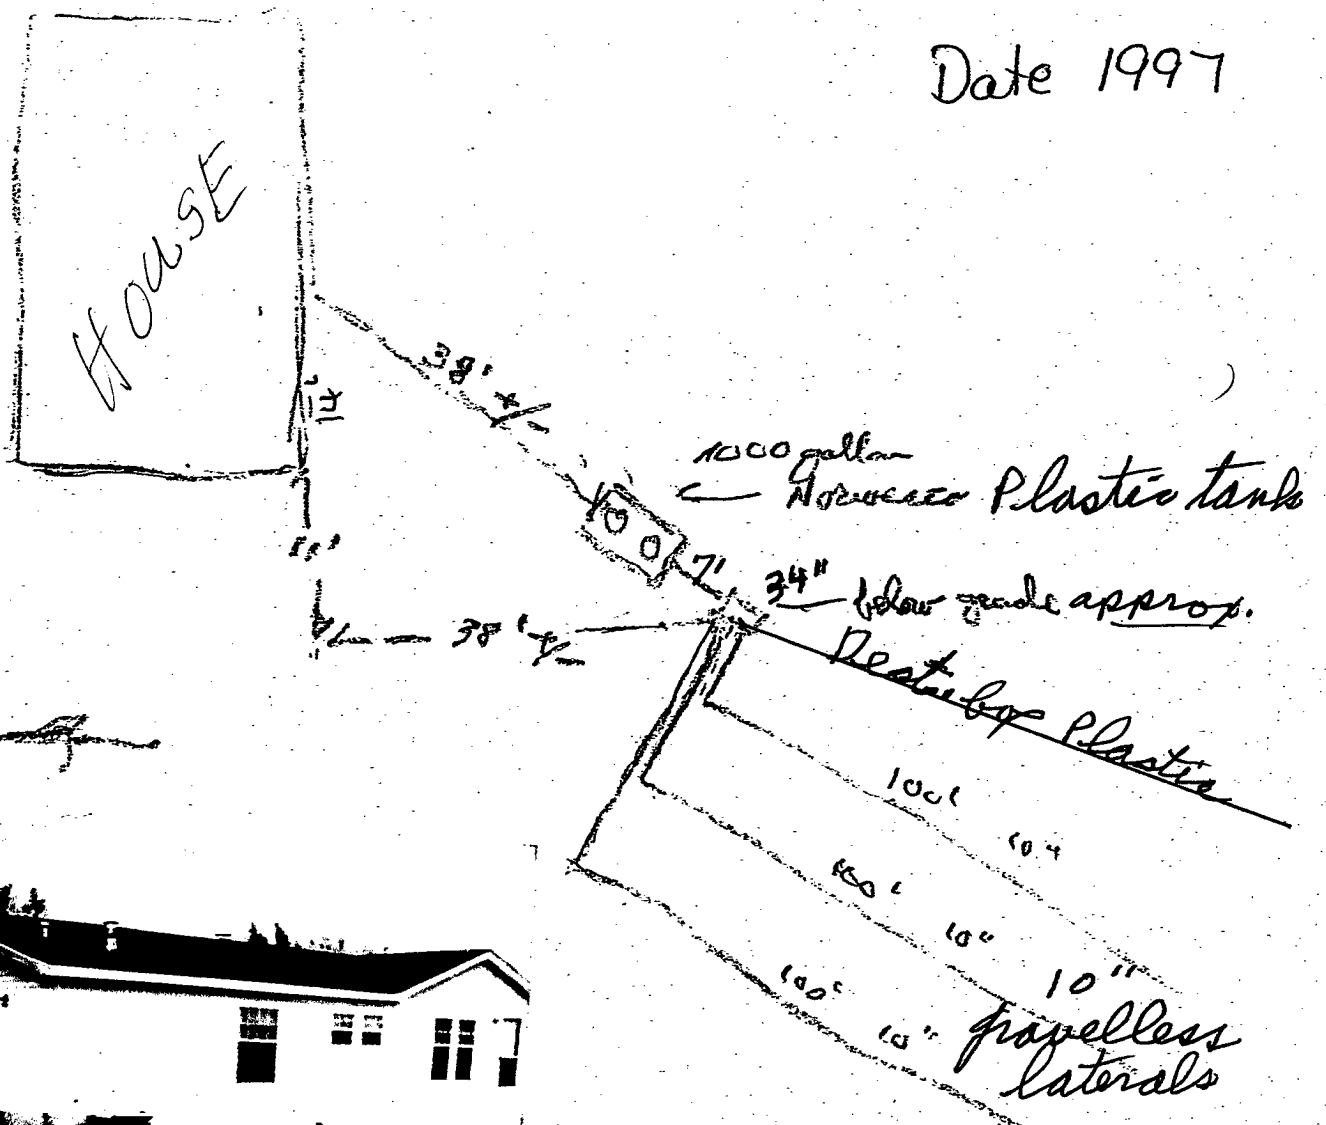 Date 1997
HOUSE
38' +/-
14'
1000 gallon
Norwesco Plastic tank
7'
34" below grade approx.
38' +/-
Distri box Plastic
100'
10"
100'
10"
100'
10"
10"
gravelless
laterals